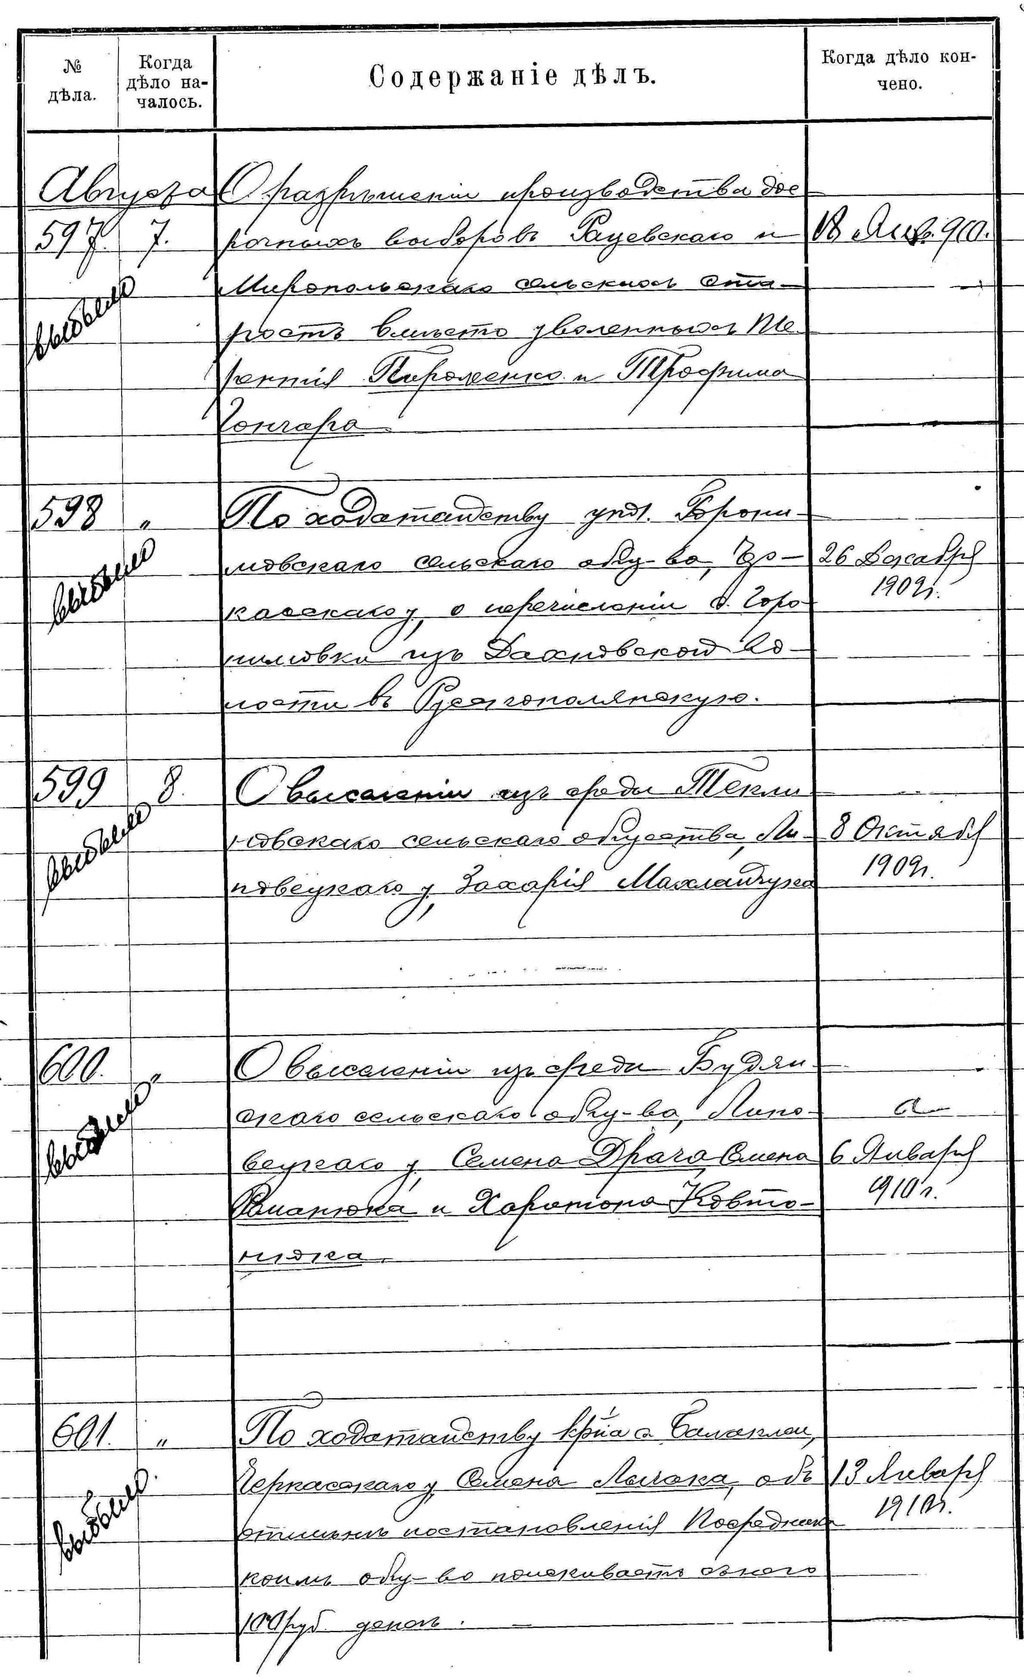 № дѣла.
Когда дѣло на-
чалось.
Содержаніе дѣлъ.
Когда дѣло кон-
чено.
Августа
597. 7.
выбыло
О разрѣшеніи производства дос-
рочныхъ выборовъ Рацевскаго и
Миропольскаго сельскихъ ста-
ростъ вмѣсто уволенныхъ Те-
рентія Пироженко и Трофима
Гончара.
18 Янв. 910.
598 "
выбыло
По ходатайству упл. Горони-
мовскаго сельскаго общ-ва, Чер-
касскаго у, о перечисленіи д. Горо-
нимовки изъ Дахновской во-
лости въ Русскополянскую.
26 Декабря
1909г.
599 8.
выбыло
О выселеніи изъ среды Текли-
новскаго сельскаго общества, Ли-
повецкаго у, Захарія Махлайчука
8 Октября
1909г.
600. "
выбыло
О выселеніи изъ среды Будян-
скаго сельскаго общ-ва, Липо-
вецкаго у, Семена Драча, Семена
Романюка и Харитона Ковто-
нюка.
6 Января
910 г.
601. "
выбыло.
По ходатайству кр-на с. Балаклеи,
Черкасскаго у, Семена Лысака, объ
отмѣнѣ постановленія Посредника
коимъ общ-во поискиваетъ съ него
100 руб. денегъ.
13 Января
1910г.